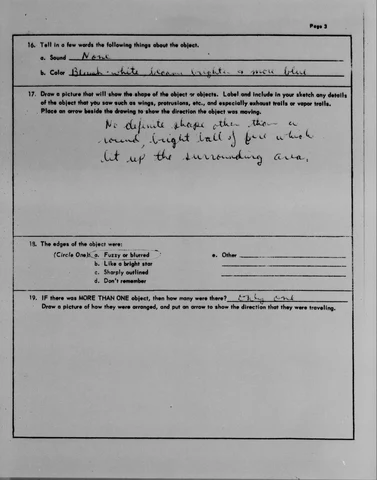 Page 3
16. Tell in a few words the following things about the object.
a. Sound None
b. Color Bluish-white became brighter & more blue
17. Draw a picture that will show the shape of the object or objects. Label and include in your sketch any details
of the object that you saw such as wings, protrusions, etc., and especially exhaust trails or vapor trails.
Place an arrow beside the drawing to show the direction the object was moving.
No definite shape other than a
round, bright ball of fire which
lit up the surrounding area.
18. The edges of the object were:
(Circle One): a. Fuzzy or blurred e. Other
b. Like a bright star
c. Sharply outlined
d. Don't remember
19. IF there was MORE THAN ONE object, then how many were there? Only one
Draw a picture of how they were arranged, and put an arrow to show the direction that they were traveling.